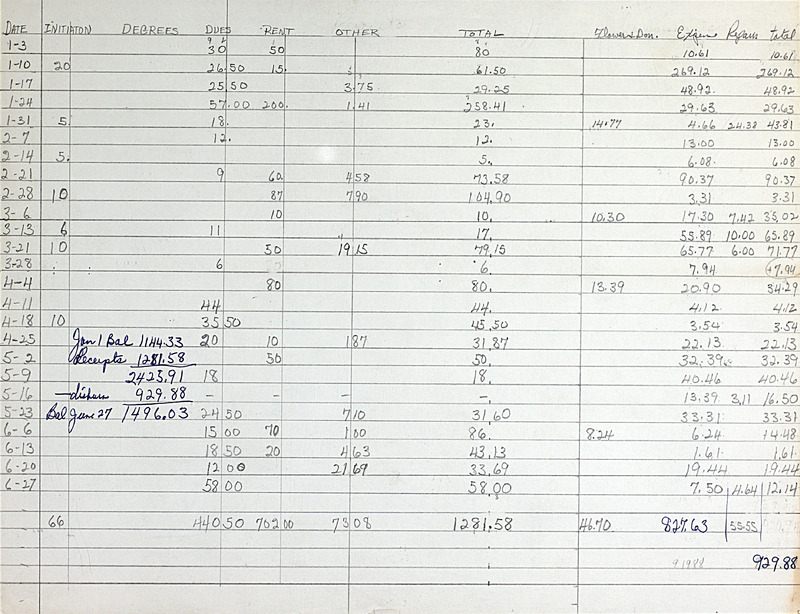 DATE INITIATON DEGREES DUES RENT OTHER TOTAL Flowers Don. Expense Repairs total
1-3 30 50 80 10.61 10.61
1-10 20 26.50 15. 61.50 269.12 269.12
1-17 25.50 3.75 29.25 48.92 48.92
1-24 57.00 200. 1.41 258.41 29.63 29.63
1-31 5. 18. 23. 14.77 4.66 24.38 43.81
2-7 12. 12. 13.00 13.00
2-14 5. 5. 6.08 6.08
2-21 9 60. 4 58 73.58 90.37 90.37
2-28 10 87 7 90 104.90 3.31 3.31
3-6 10 10. 10.30 17.30 7.42 35.02
3-13 6 11 17. 55.89 10.00 65.89
3-21 10 50 19 15 79.15 65.77 6.00 71.77
3-28 6 6. 7.94 7.94
4-4 80 80. 13.39 20.90 34.29
4-11 44 44. 4.12 4.12
4-18 10 35 50 45.50 3.54 3.54
4-25 Jan 1 Bal 1144.33 20 10 1 87 31.87 22.13 22.13
5-2 Receipts 1281.58 50 50. 32.39 32.39
5-9 2425.91 18 18. 40.46 40.46
5-16 - disburs 929.88 - - - -. 13.39 3.11 16.50
5-23 Bal June 27 1496.03 24 50 7 10 31.60 33.31 33.31
6-6 15 00 70 1 00 86. 8.24 6.24 14.48
6-13 18 50 20 4 63 43.13 1.61 1.61
6-20 12 00 21 69 33.69 19.44 19.44
6-27 58 00 58.00 7.50 4.64 12.14
66 440 50 702 00 73 08 1281.58 46.70 827.63 55.55
929.88